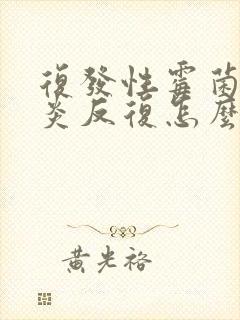 復發性霉菌
炎反復怎麼
黃光裕